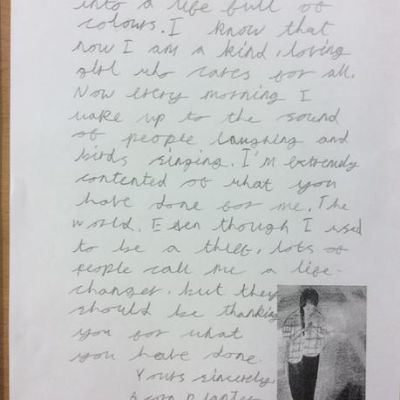 into a life full of
colours. I know that
now I am a kind, loving
girl who cares for all.
Now every morning I
wake up to the sound
of people laughing and
birds singing. I'm extremely
contented of what you
have done for me. The
world. Even though I used
to be a thief, lots of
people call me a life-
changer. but they
should be thanking
you for what
you have done.
Yours sincerely
Acorn planter